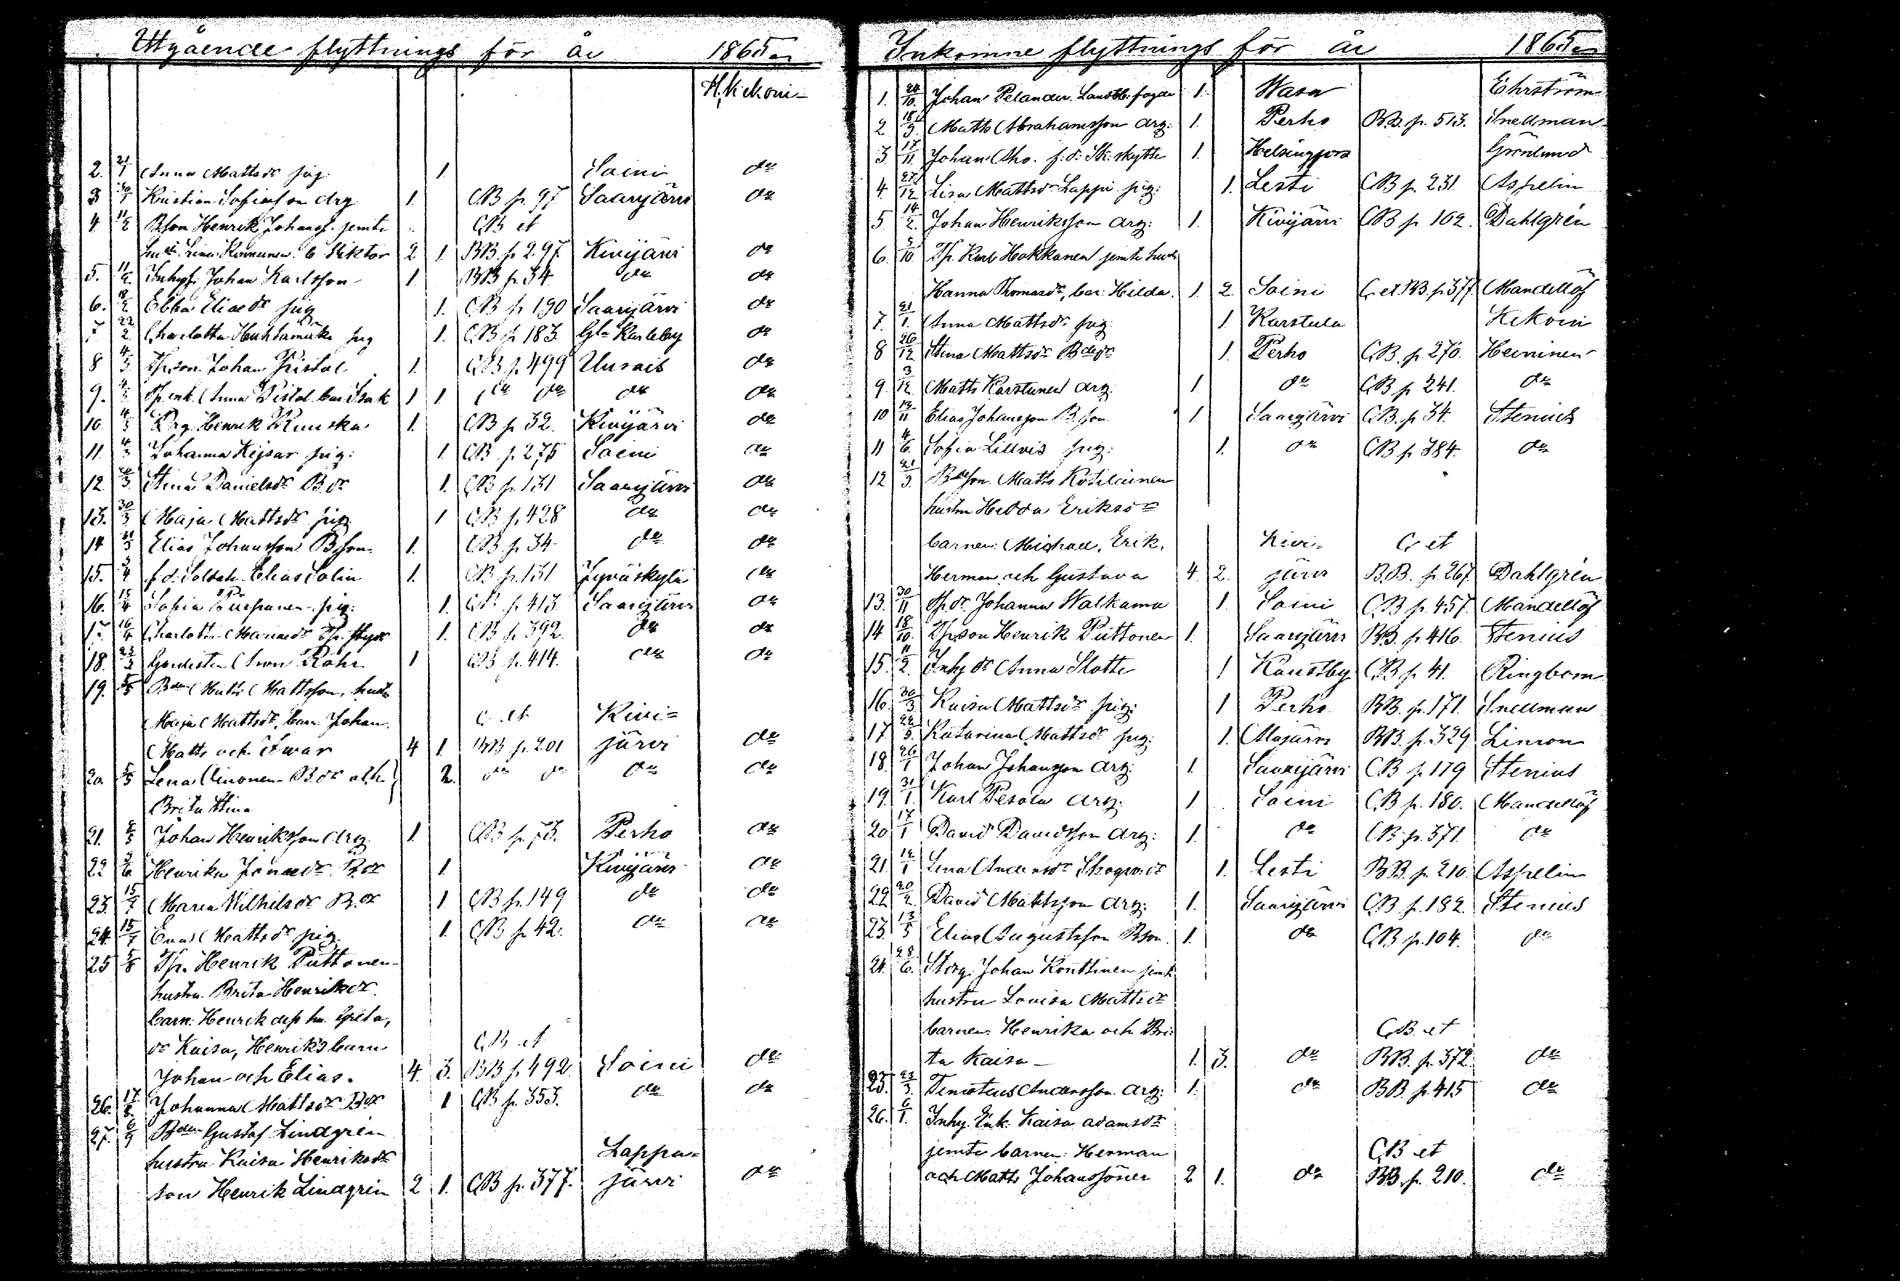 Utgående flyttnings för år 1865
H. Kekoni
2. 21/1 Anna Mattsdr pig. 1 Soini do
3 Kristian Sofiason drg 1. CB p 97 Saarijärvi do
4 11/2 Bson Henrik Johans. jemte CB et
Lena Kinnunen o Viktor 2 1 BB. p 297. Kivijärvi do
5. 11/2 Inhys. Johan Karlsson 1 BB p 34. do do
6. Ebba Eliasdr pig 1. CB p 190 Saarijärvi do
7 22/2 Charlotta Huhtamäki pig 1. CB p 183. Gla Karleby do
8 4/3 Tpson. Johan Pistol 1. CB p 499 Uurais do
9. Tp. enk. Anna Pistol. barn Isak 1 1 do do do do
10. 4/3 Drg. Henrik Ruuska 1. CB p 32. Kivijärvi do
11. 4/3 Johanna Kejsar pig: 1 CB p 275 Soini do
12. Stina Danielsdr Bdr 1. CB p 131 Saarijärvi do
13. 30/3 Maja Mattsdr pig. 1 CB p. 428 do do
14 31/3 Elias Johansson Bson. 1. CB p 34. do do
15. 3/4 f.d. Soldat. Elias Solin 1. CB p. 131 Jyväskylä do
16. 15/4 Sofia pig. 1. CB p 413. Saarijärvi do
17. 16/4 Charlotta 1. CB p 392. do do
18. 23/3 Rohr 1 CB p. 414. do do
19. 5/5 Bden Matts Mattsson, hust
Maja Mattsdr, barn Johan C et Kivi=
Matts och Iwar 4 1. BB p. 201 järvi do
20. 5/5 Lena Ainonen Bdr och 2. do do do do
Brita Stina
21. Johan Henriksson drg. 1. CB p. 73. Perho do
22 Henrika Bdr 1. Kivijärvi do
23. 15/7 Maria Wilhelsdr Bdr 1 CB p. 149 do do
24. 15/7 Mattsdr pig. 1. CB p 42. do do
25 5/8 Tp. Henrik Puttonen
hustru Brita Henriksdr.
barn: Henrik dess hu. Greta,
dr Kaisa, Henriks barn CB et
Johan och Elias. 4. 3. BB p. 492. Soini do
26. 17/8 Johanna Mattsdr Bdr 1 CB p. 353. do do
27. 6/9 Bden Gustaf Lindgren
hustru Kaisa Henriksdr Lappa=
son Henrik Lindgren 2 1. CB p. 377. järvi do
Inkomne flyttnings för år 1865
1. 24/10. Johan Pelander. fogde 1. Wasa Ehrström
2 18/3. Matts Abrahamsson drg: 1. Perho BB. p. 513. Snellman
3 17/11 Johan f.d. Sk. skytte 1. Helsingfors Grönlund
4. 27/12 Lisa Mattsdr Lappi pig: 1. Lesti CB p 231. Aspelin
5 14/2 Johan Henriksson drg: 1. Kivijärvi CB p 102. Dahlgrén
6. 5/10 Tp. Karl Hokkanen jemte hust
Hanna Thomasdr, bar: Hilda. 1. 2 Soini C et BB. p. 377. Mandellöf
7. 21/1. Anna Mattsdr pig. 1 Karstula Kekoni
8 26/12 Stina Mattsdr Bdr 1. Perho CB. p. 270. Heininen
9. 3/12 Matts Karstunen drg. 1 do CB p 241. do
10 12/11 Elias Johansson Bson. 1 Saarijärvi CB. p 34. Stenius
11 4/6. Sofia Lillvis pig: 1. do CB p 384. do
12 21/3 Bdson. Matts Kotilainen
hustru Hedda Eriksdr
barnen: Michael, Erik, Kivi= C et
Herman och Gustava 4. 2. järvi B.B. p. 267. Dahlgrén
13. 30/11 Tp. dr Johanna Walkama 1. Soini CB. p 457. Mandellöf
14 18/10. Tpson Henrik Puttonen 1. Saarijärvi BB. p 416. Stenius
15. 11/2. Inhy dr Anna Slotte 1 Kaustby CB p 41. Ringbom
16 30/3 Kaisa Mattsdr pig: 1 Perho BB. p. 171. Snellman
17 Katarina Mattsdr pig. 1. Alajärvi BB. p. 329 Limon
18. 26/1 Johan Johansson drg. 1. Saarijärvi CB p 119 Stenius
19. 31/1. Karl Pesola drg. 1 Soini CB p. 180. Mandellöf
20 17/1 David Davidsson drg: 1. do CB. p. 371. do
21 12/1 Lena Andersdr 1. Lesti BB. p 210. Aspelin
22 20/2 David Mattsson drg. 1. Saarijärvi CB p. 182. Stenius
23. 13/5 Elias Augustsson Bson. 1. do CB p. 104. do
24. 28/6. Johan Konttinen jemt.
hustru Lovisa Mattsdr
barnen: Henrika och Bri= CB et
ta Kaisa 1. 3. do BB. p. 372. do
25. 23/3. Timoteus Andersson drg: 1. do BB p. 415 do
26. 6/1. Inhy. Enk. Kaisa Adamsdr
jemte barnen: Herman CB et
och Matts Johanssöner 2 1. do BB. p. 210. do